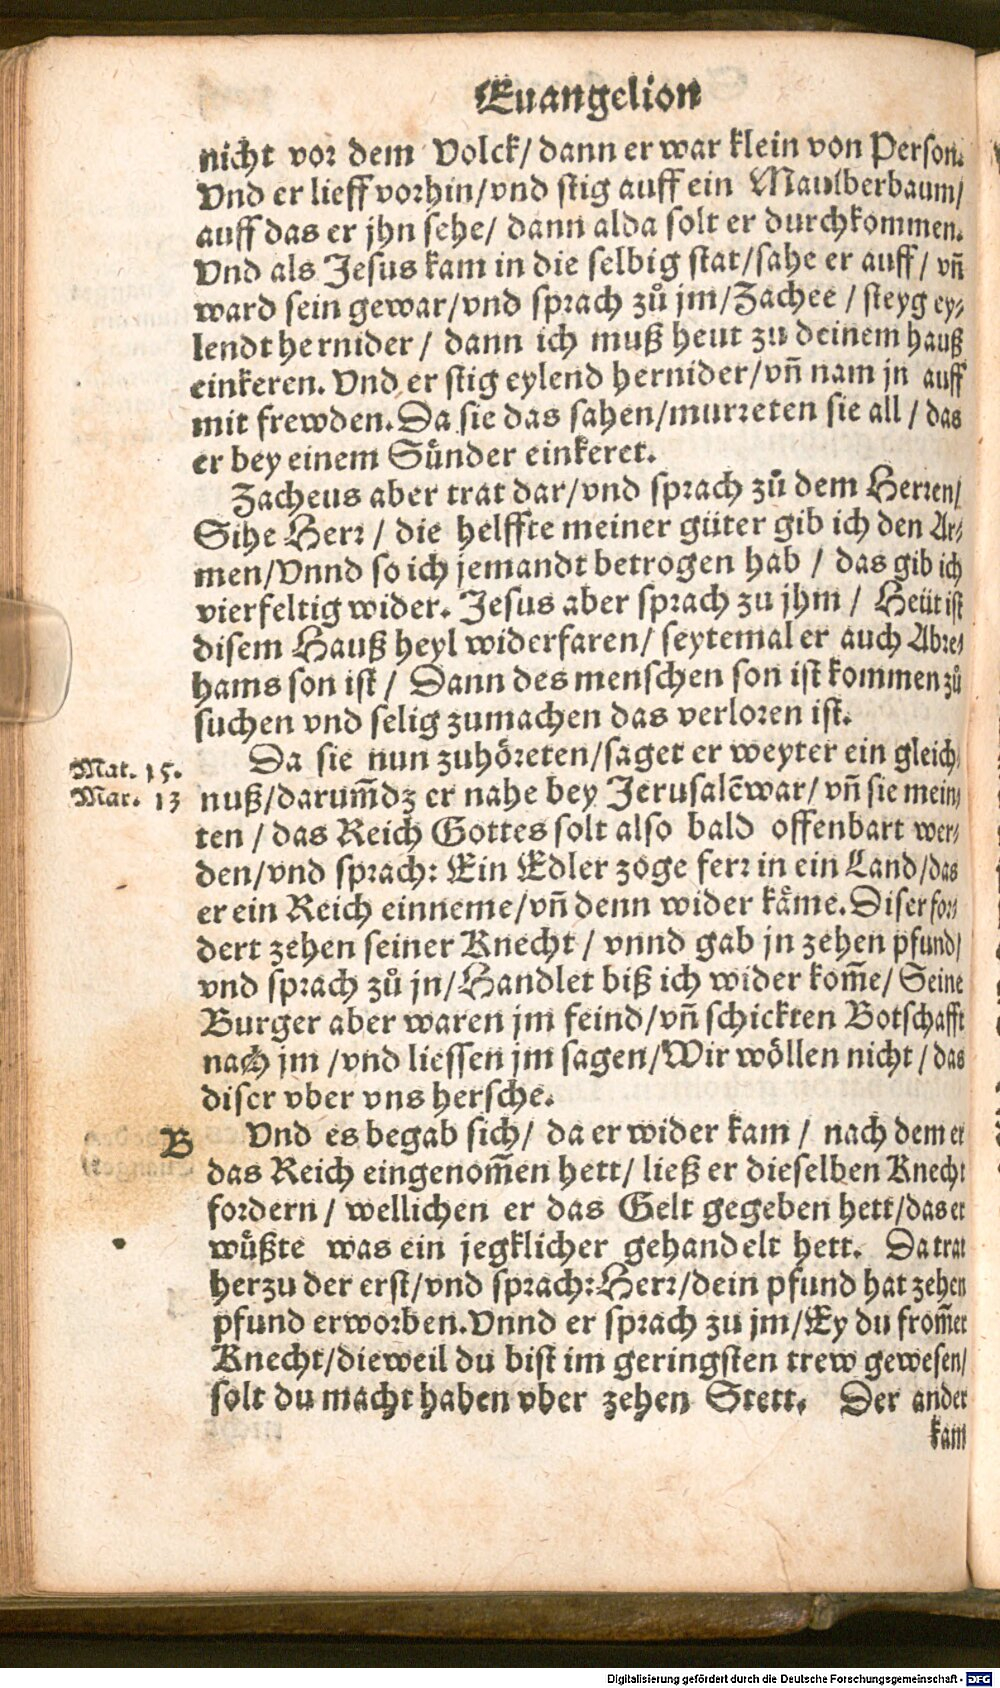 Euangelion
nicht vor dem Volck/ dann er war klein von Person.
Vnd er lieff vorhin/vnd stig auff ein Maulberbaum/
auff das er jhn sehe/ dann alda solt er durchkommen.
Vnd als Jesus kam in die selbig stat/sahe er auff/ vñ
ward sein gewar/vnd sprach zů jm/Zachee / steyg ey⸗
lendt hernider / dann ich muß heut zu deinem hauß
einkeren. Vnd er stig eylend hernider/vñ nam jn auff
mit frewden. Da sie das sahen/murreten sie all / das
er bey einem Sünder einkeret.
Zacheus aber trat dar/vnd sprach zů dem Herren/
Sihe Herr / die helffte meiner güter gib ich den Ar⸗
men/Vnnd so ich jemandt betrogen hab / das gib ich
vierfeltig wider. Jesus aber sprach zu jhm / Heüt ist
disem Hauß heyl widerfaren/ seytemal er auch Abra⸗
hams son ist / Dann des menschen son ist kommen zů
suchen vnd selig zumachen das verloren ist.
Da sie nun zuhöreten/saget er weyter ein gleich⸗
Mat. 15.
Mar. 13
nuß/darum̃dz er nahe bey Jerusalẽ war/ vñ sie mein⸗
ten / das Reich Gottes solt also bald offenbart wer⸗
den/vnd sprach: Ein Edler zoge ferr in ein Land/das
er ein Reich einneme/vñ denn wider käme. Diser for⸗
dert zehen seiner Knecht / vnnd gab jn zehen pfund/
vnd sprach zů jn/Handlet biß ich wider kom̃e/ Seine
Burger aber waren jm feind/vñ schickten Botschafft
nach jm /vnd liessen jm sagen/Wir wöllen nicht / das
diser vber vns hersche.
B
Vnd es begab sich/ da er wider kam / nach dem er
das Reich eingenom̃en hett/ ließ er dieselben Knecht
fordern / wellichen er das Gelt gegeben hett/das er
wüßte was ein jegklicher gehandelt hett. Da trat
herzu der erst/vnd sprach: Herr/dein pfund hat zehen
pfund erworben. Vnnd er sprach zu jm/Ey du from̃er
Knecht/dieweil du bist im geringsten trew gewesen/
solt du macht haben vber zehen Stett. Der ander
kam
Digitalisierung gefördert durch die Deutsche Forschungsgemeinschaft - DFG